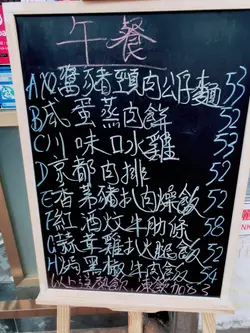 午餐
A XO醬豬頸肉公仔麵 53
B 咸蛋蒸肉餅 52
C 川味口水雞 53
D 京都肉排 52
E 香茅豬扒肉燥飯 52
F 紅酒炆牛肋條 58
G 蒜茸雞扒火腿飯 52
H 焗黑椒牛肉飯 54
以上送熱飲 凍飲加$3